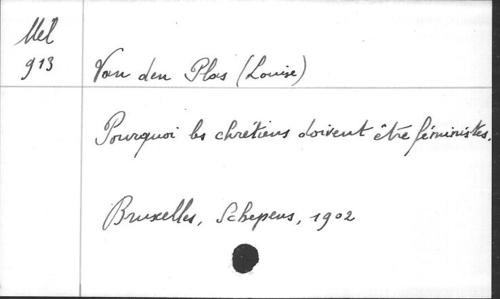 Mel
913
Van den Plas (Louise)
Pourquoi les chrétiens doivent être féministes.
Bruxelles, Schepens, 1902